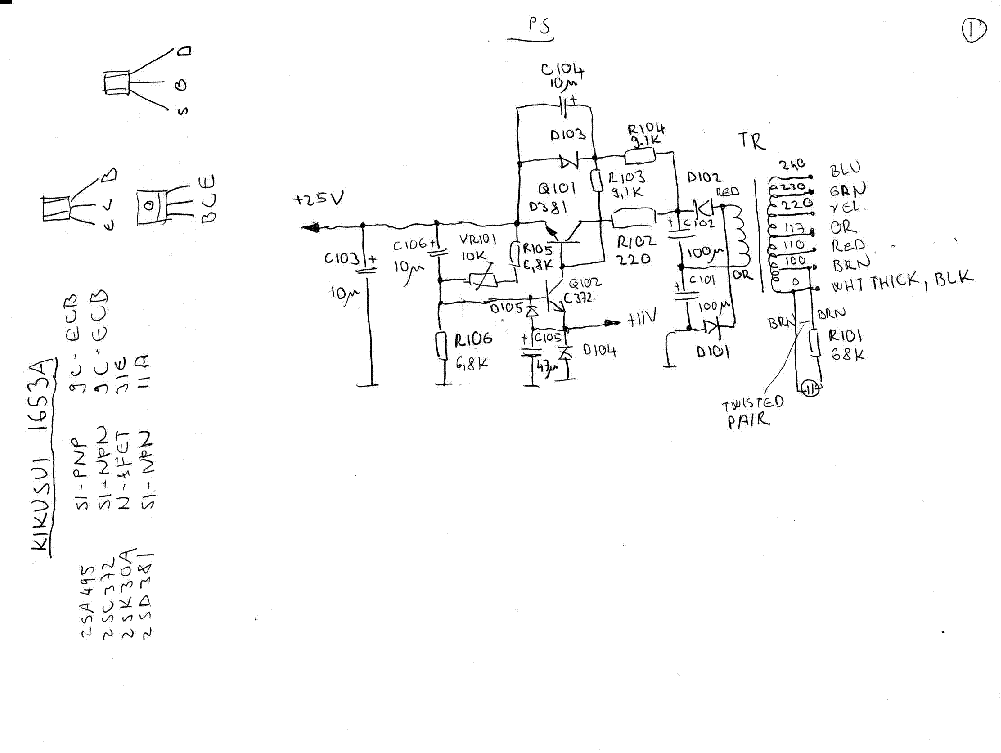 PS
1
D
G
S
B
C
E
E
C
B
KIKUSUI 1653A
2SA495 SI-PNP 9C-ECB
2SC372 SI-NPN 9C-ECB
2SK30A N-JFET 31E
2SD381 SI-NPN 11A
C104
10µ
+
D103
R104
9.1K
R103
9,1K
Q101
D381
+25V
C103
10µ
+
C106
10µ
+
VR101
10K
R105
6,8K
Q102
C372
R102
220
C102
100µ
+
D102
RED
C101
100µ
+
OR
D101
D105
C105
47µ
+
D104
+11V
R106
6,8K
TR
240 BLU
230 GRN
220 YEL
117 OR
110 RED
100 BRN
0 WHT THICK, BLK
BRN
BRN
R101
68K
TWISTED
PAIR